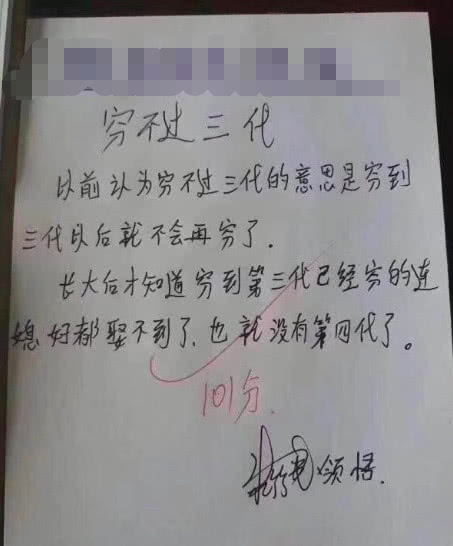 穷不过三代
以前认为穷不过三代的意思是穷到
三代以后就不会再穷了.
长大后才知道穷到第三代已经穷的连
媳妇都娶不到了,也就没有第四代了。
101分.
领悟.